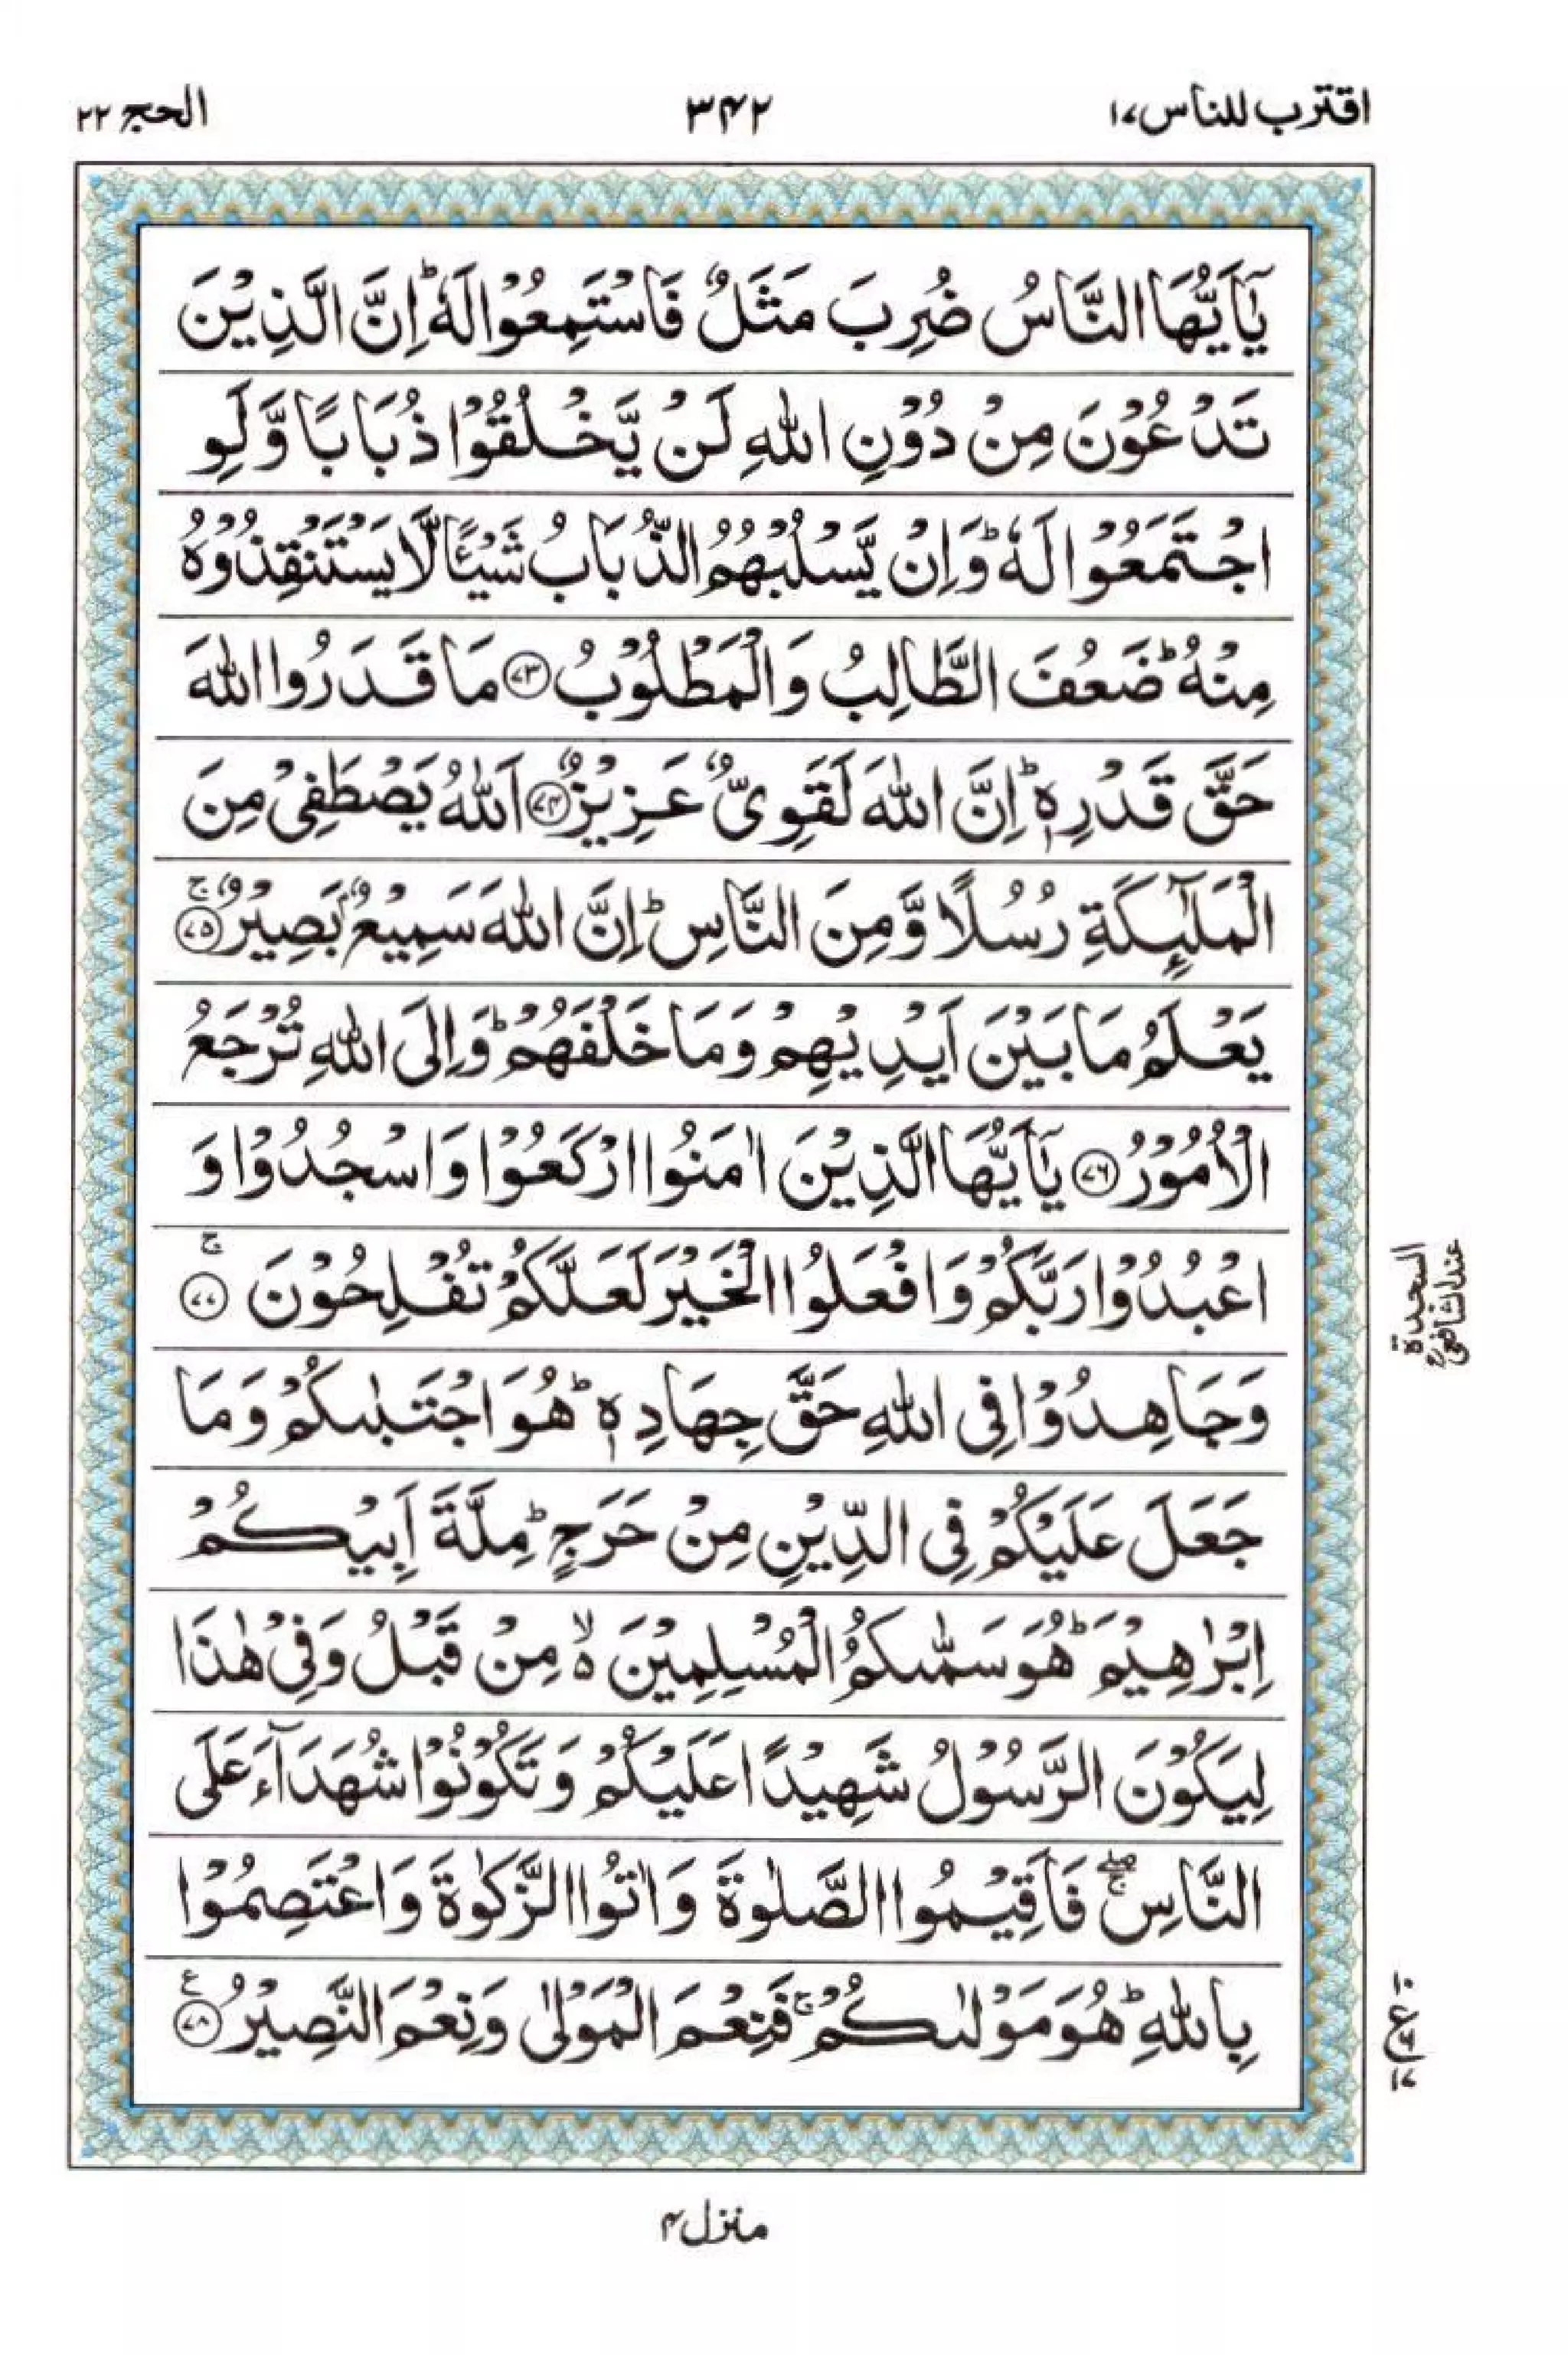 اقترب للناس ۱۷
۳۴۲
الحج ۲۲
يٰۤاَيُّهَا النَّاسُ ضُرِبَ مَثَلٌ فَاسْتَمِعُوْا لَهٗ ؕ اِنَّ الَّذِيْنَ
تَدْعُوْنَ مِنْ دُوْنِ اللّٰهِ لَنْ يَّخْلُقُوْا ذُبَابًا وَّلَوِ
اجْتَمَعُوْا لَهٗ ؕ وَاِنْ يَّسْلُبْهُمُ الذُّبَابُ شَيْـًٔا لَّا يَسْتَنْقِذُوْهُ
مِنْهُ ؕ ضَعُفَ الطَّالِبُ وَالْمَطْلُوْبُ ﴿۷۳﴾ مَا قَدَرُوا اللّٰهَ
حَقَّ قَدْرِهٖ ؕ اِنَّ اللّٰهَ لَقَوِىٌّ عَزِيْزٌ ﴿۷۴﴾ اَللّٰهُ يَصْطَفِىْ مِنَ
الْمَلٰٓئِكَةِ رُسُلًا وَّمِنَ النَّاسِ ؕ اِنَّ اللّٰهَ سَمِيْعٌۢ بَصِيْرٌ ۚ ﴿۷۵﴾
يَعْلَمُ مَا بَيْنَ اَيْدِيْهِمْ وَمَا خَلْفَهُمْ ؕ وَاِلَى اللّٰهِ تُرْجَعُ
الْاُمُوْرُ ﴿۷۶﴾ يٰۤاَيُّهَا الَّذِيْنَ اٰمَنُوا ارْكَعُوْا وَاسْجُدُوْا وَ
اعْبُدُوْا رَبَّكُمْ وَافْعَلُوا الْخَيْرَ لَعَلَّكُمْ تُفْلِحُوْنَ ۚ ﴿۷۷﴾
السجدة
عند الشافعي
وَجَاهِدُوْا فِى اللّٰهِ حَقَّ جِهَادِهٖ ؕ هُوَ اجْتَبٰىكُمْ وَمَا
جَعَلَ عَلَيْكُمْ فِى الدِّيْنِ مِنْ حَرَجٍ ؕ مِلَّةَ اَبِيْكُمْ
اِبْرٰهِيْمَ ؕ هُوَ سَمّٰىكُمُ الْمُسْلِمِيْنَ ۙ۬ مِنْ قَبْلُ وَفِىْ هٰذَا
لِيَكُوْنَ الرَّسُوْلُ شَهِيْدًا عَلَيْكُمْ وَتَكُوْنُوْا شُهَدَآءَ عَلَى
النَّاسِ ۖۚ فَاَقِيْمُوا الصَّلٰوةَ وَاٰتُوا الزَّكٰوةَ وَاعْتَصِمُوْا
بِاللّٰهِ ؕ هُوَ مَوْلٰىكُمْ ۚ فَنِعْمَ الْمَوْلٰى وَنِعْمَ النَّصِيْرُ ﴿۷۸﴾ ع
۱۰
ع
۱۷
منزل ۴